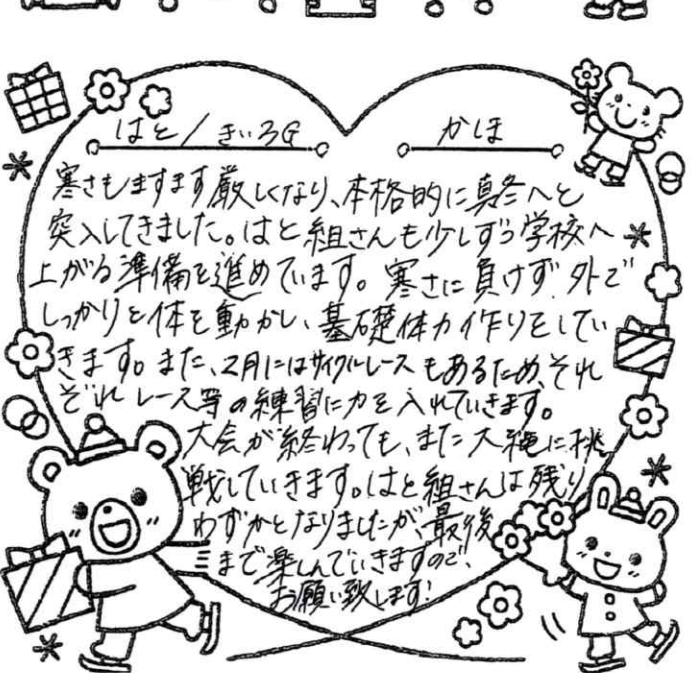 はと/きいろG
かほ
寒さもますます厳しくなり、本格的に真冬へと
突入してきました。はと組さんも少しずつ学校へ
上がる準備を進めています。寒さに負けず、外で
しっかりと体を動かし、基礎体力作りをしてい
きます。また、2月にはサイクルレースもあるため、それ
ぞれレース等の練習に力を入れていきます。
大会が終わっても、また大縄に挑
戦していきます。はと組さんは残り
わずかとなりましたが、最後
まで楽しんでいきますので、
お願い致します!